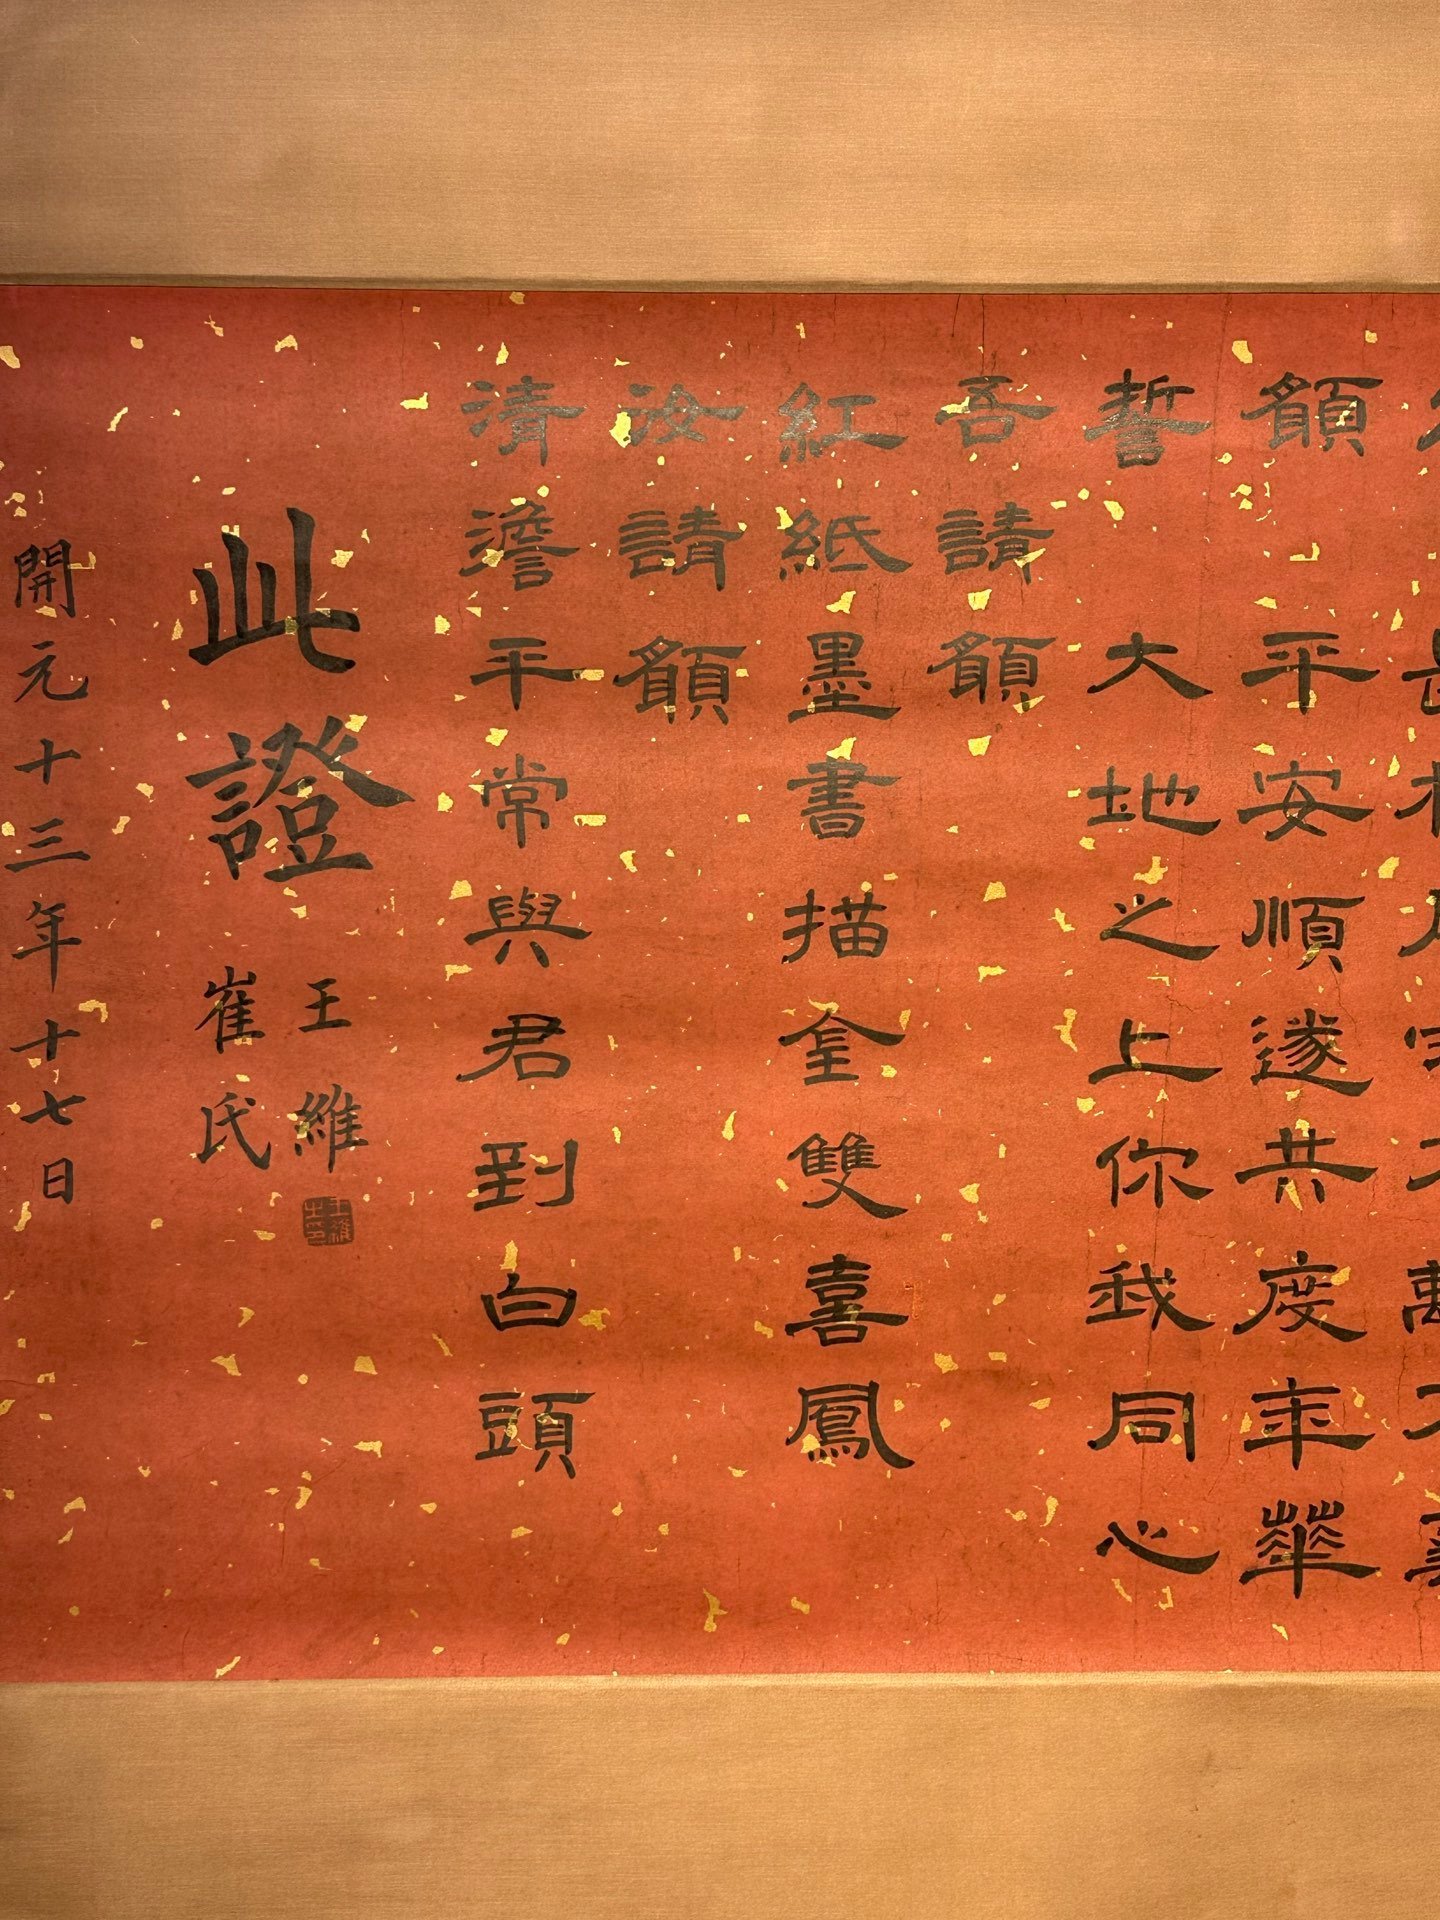 願平安順遂共度年華
誓大地之上你我同心
吾請願
紅紙墨書描金雙喜鳳
汝請願
清澹平常與君到白頭
此證
王維
崔氏
王維之印
開元十三年十七日